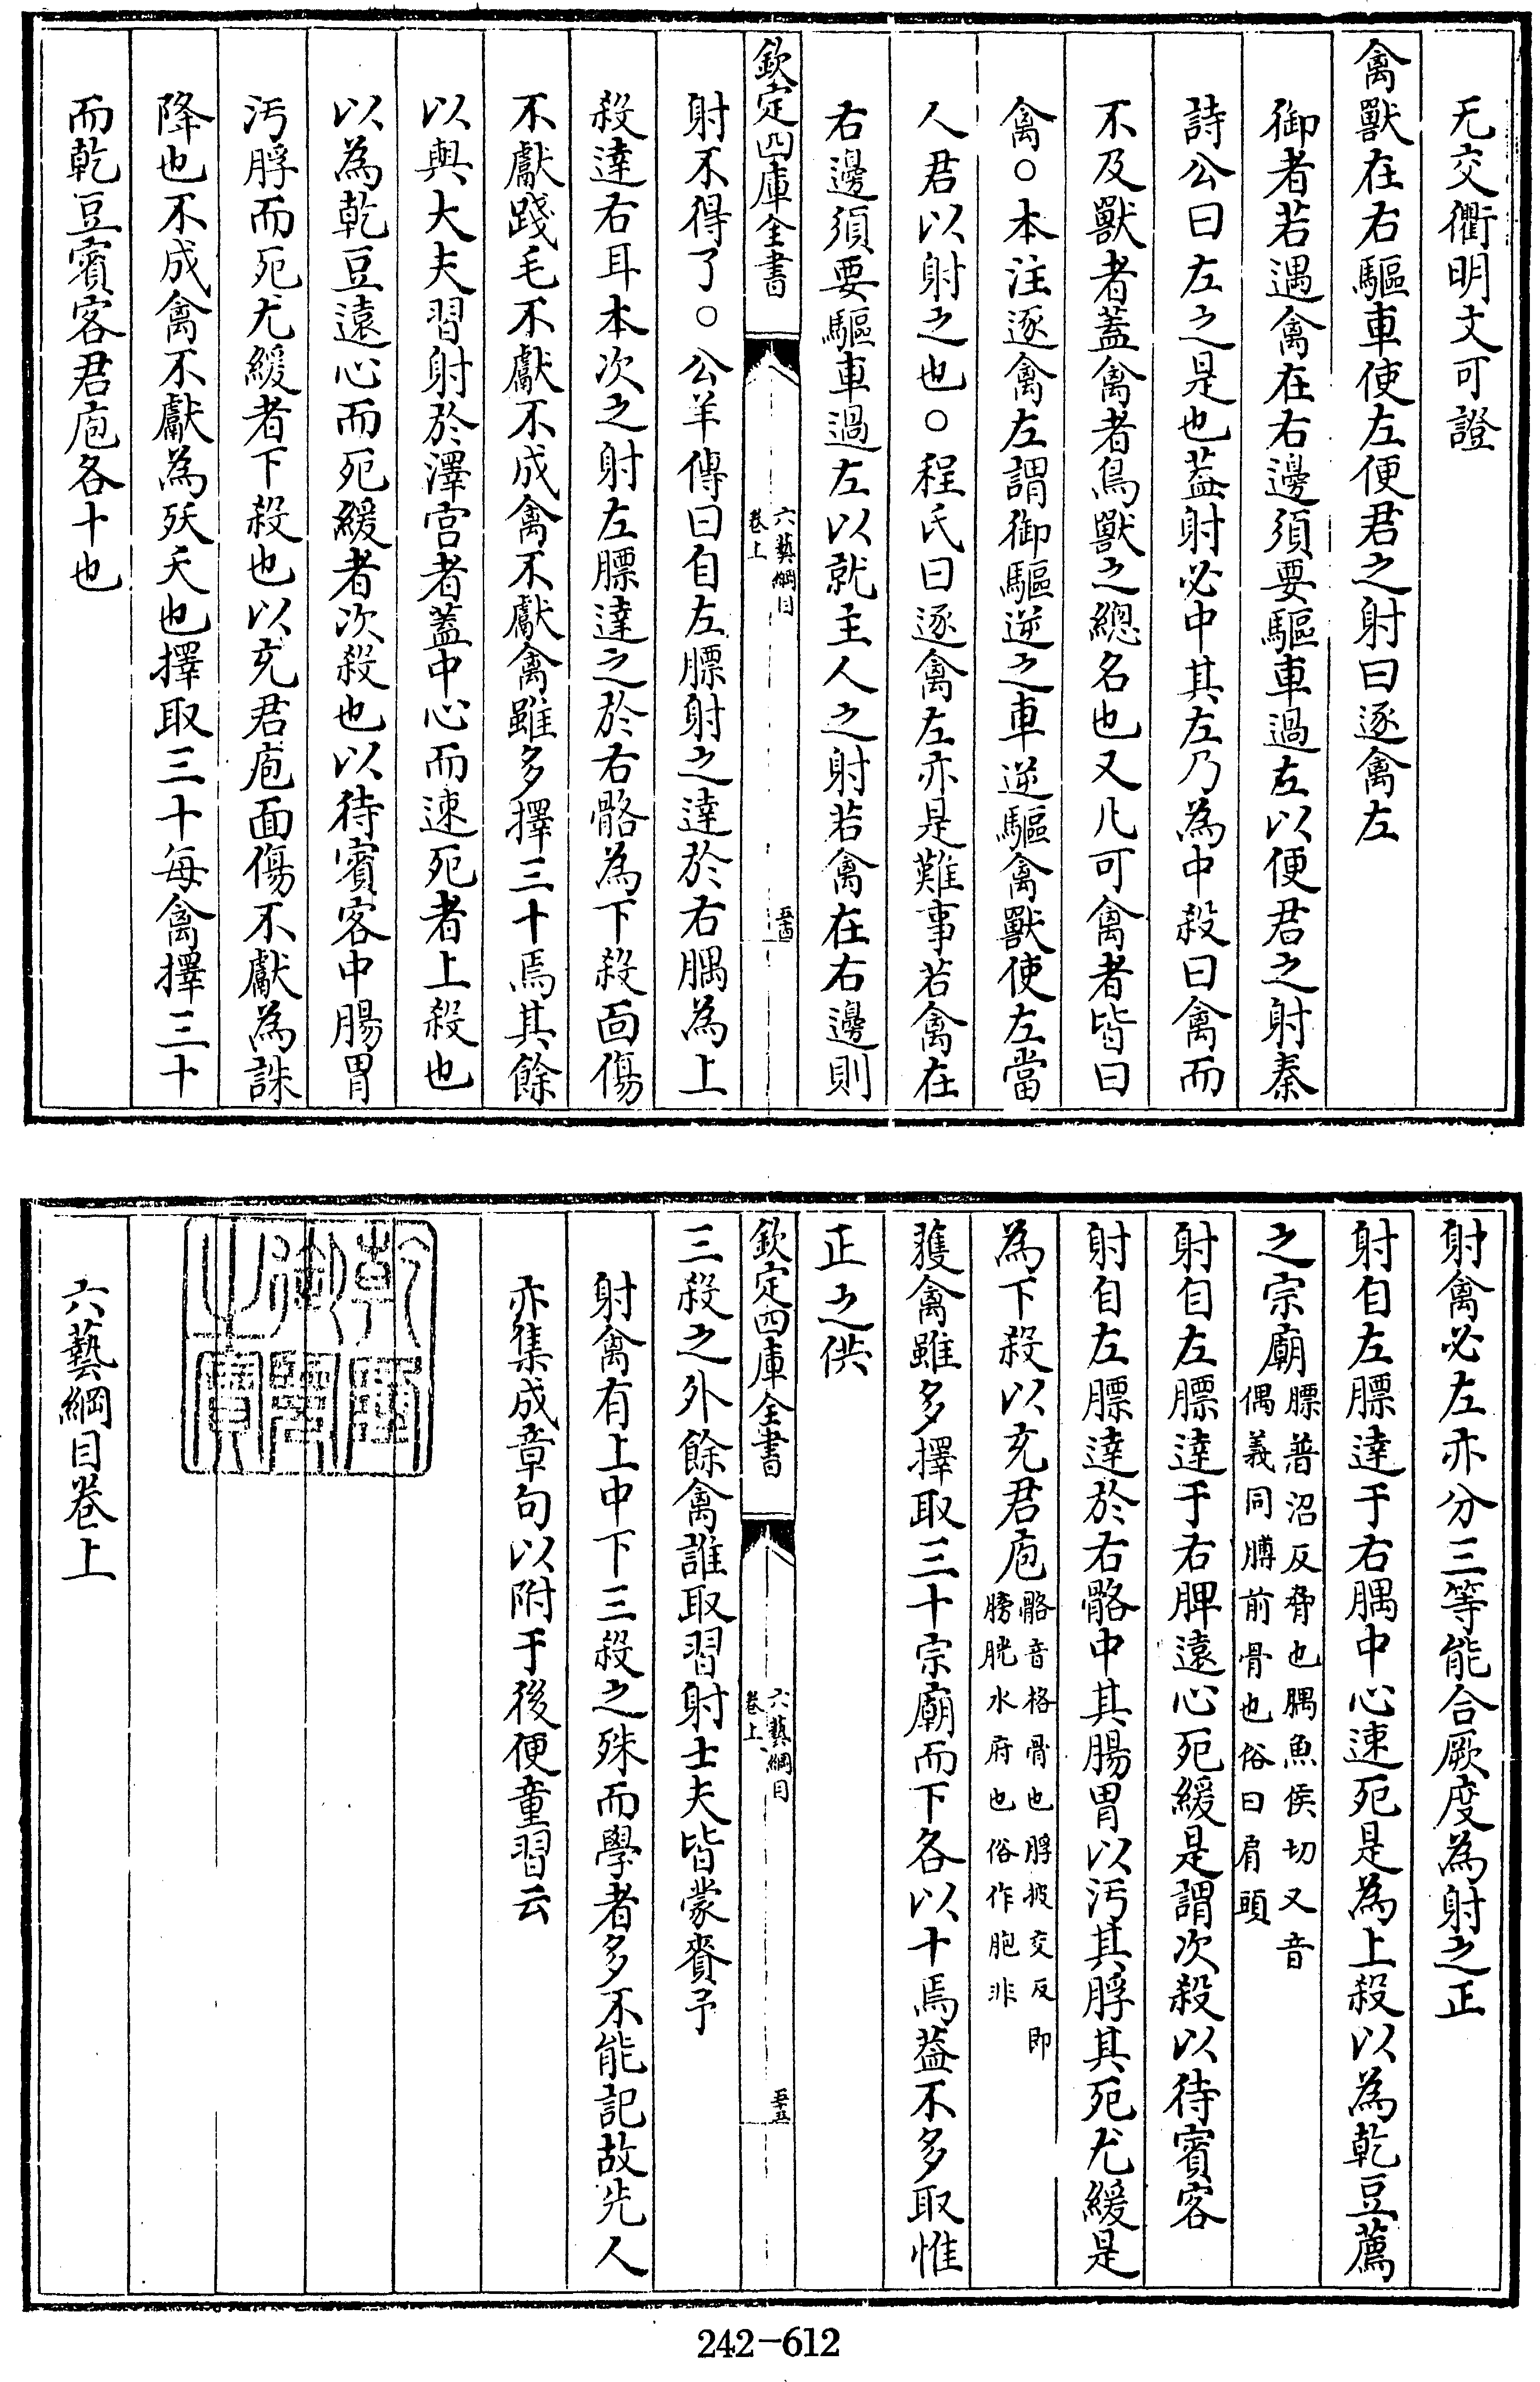 无交衢明文可證
禽獸在右驅車使左便君之射曰逐禽左
御者若遇禽在右邊須要驅車過左以便君之射秦
詩公曰左之是也葢射必中其左乃為中殺曰禽而
不及獸者蓋禽者鳥獸之總名也又凡可禽者皆曰
禽○本注逐禽左謂御驅逆之車逆驅禽獸使左當
人君以射之也○程氏曰逐禽左亦是難事若禽在
右邊須要驅車過左以就主人之射若禽在右邊則
欽定四庫全書
六藝綱目
卷上
五十四
射不得了○公羊傳曰自左膘射之達於右腢為上
殺達右耳本次之射左膘達之於右䯚為下殺面傷
不獻踐毛不獻不成禽不獻禽雖多擇三十焉其餘
以與大夫習射於澤宮者蓋中心而速死者上殺也
以為乾豆遠心而死緩者次殺也以待賓客中腸胃
汚脬而死尤緩者下殺也以充君庖面傷不獻為誅
降也不成禽不獻為殀夭也擇取三十每禽擇三十
而乾豆賓客君庖各十也
射禽必左亦分三等能合厥度為射之正
射自左膘達于右腢中心速死是為上殺以為乾豆薦
之宗廟
膘普沼反脅也腢魚侯切又音
偶義同膊前骨也俗曰肩頭
射自左膘達于右脾遠心死緩是謂次殺以待賓客
射自左膘達於右䯚中其腸胃以汚其脬其死尤緩是
為下殺以充君庖
䯚音格骨也脬披交反即
膀胱水府也俗作胞非
獲禽雖多擇取三十宗廟而下各以十焉葢不多取惟
正之供
欽定四庫全書
六藝綱目
卷上
五十五
三殺之外餘禽誰取習射士夫皆蒙賚予
射禽有上中下三殺之殊而學者多不能記故先人
亦集成章句以附于後便童習云
乾隆御覽之寶
六藝綱目卷上
242-612